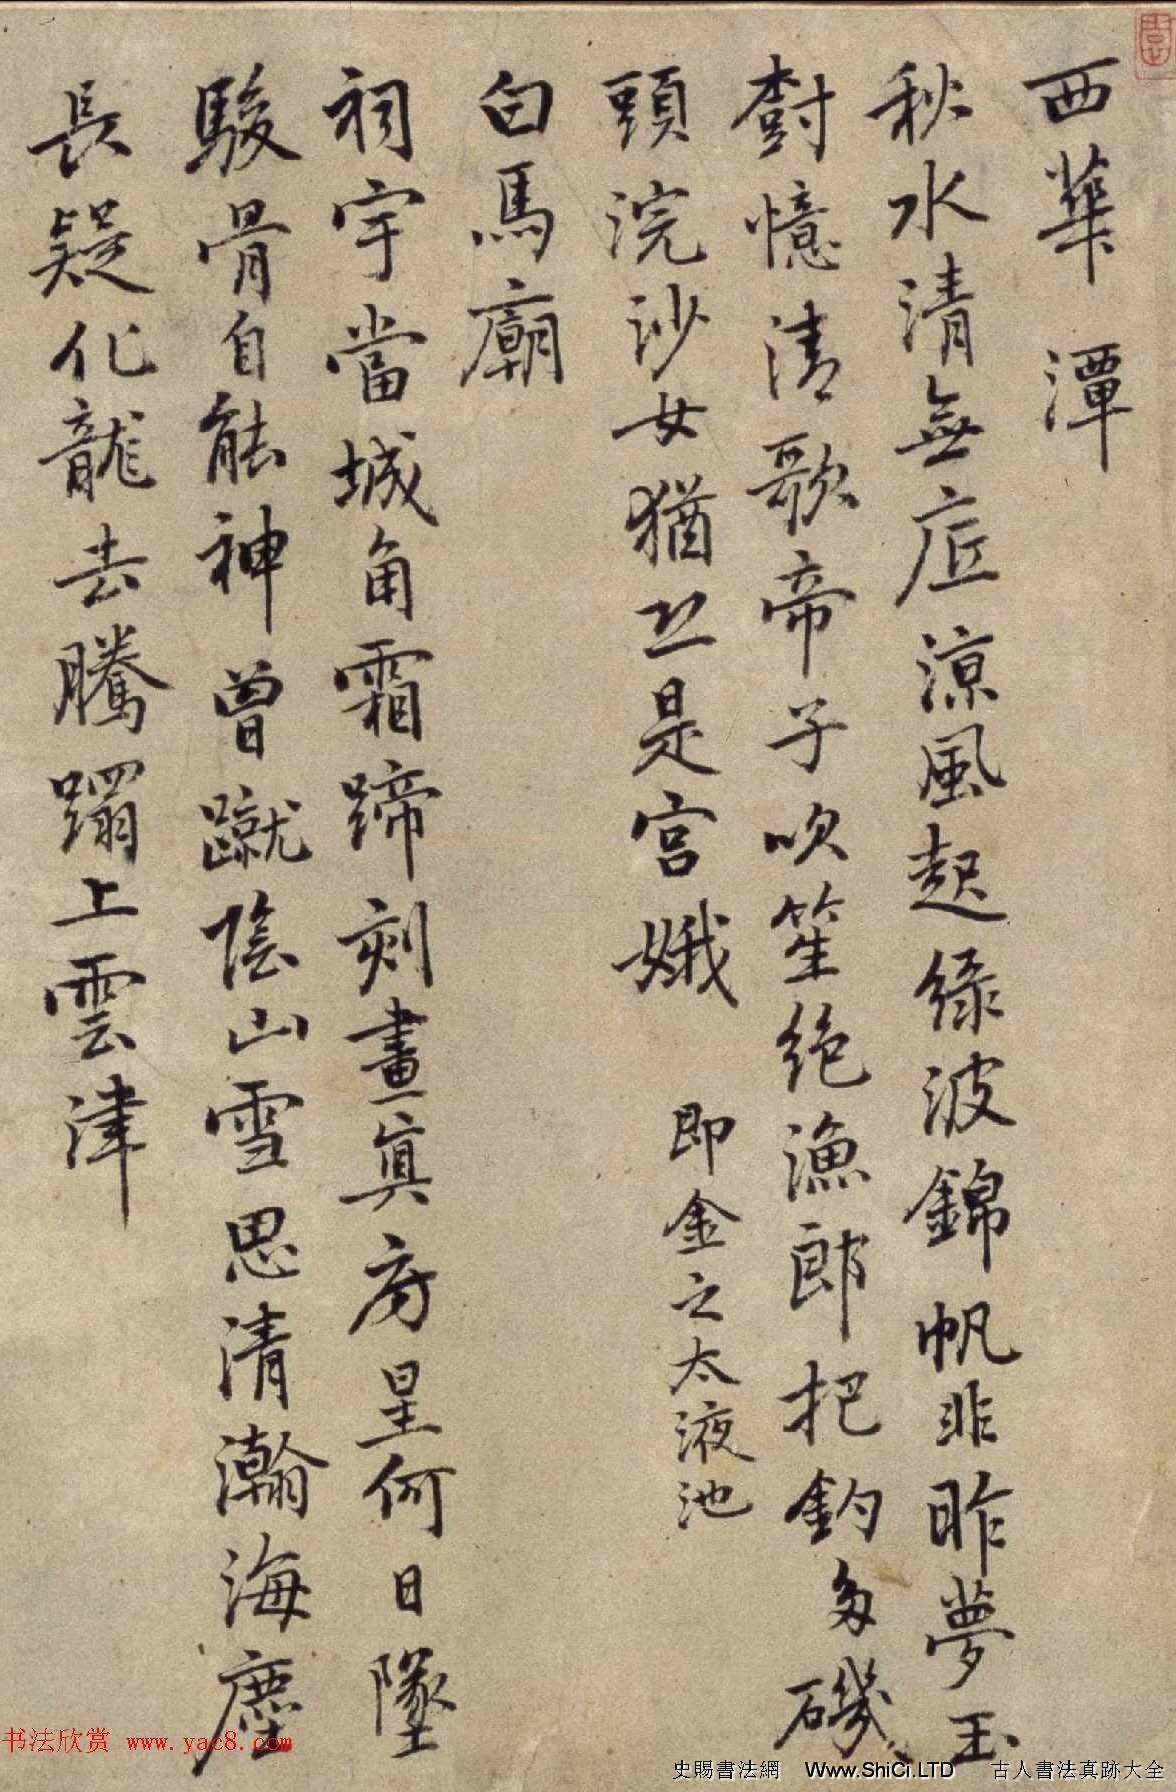 西華潭
秋水清無底涼風起綠波錦帆非昨夢玉
樹憶清歌帝子吹笙絕漁郎把釣多磯
頭浣沙女猶恐是宮娥 即金之太液池
白馬廟
祠宇當城角霜蹄刻畫真房星何日墜
駿骨自能神曾蹴陰山雪思清瀚海塵
長疑化龍去騰蹋上雲津
书法欣赏 www.yac8.com
史賜書法網 Www.ShiCi.LTD 古人書法真跡大全